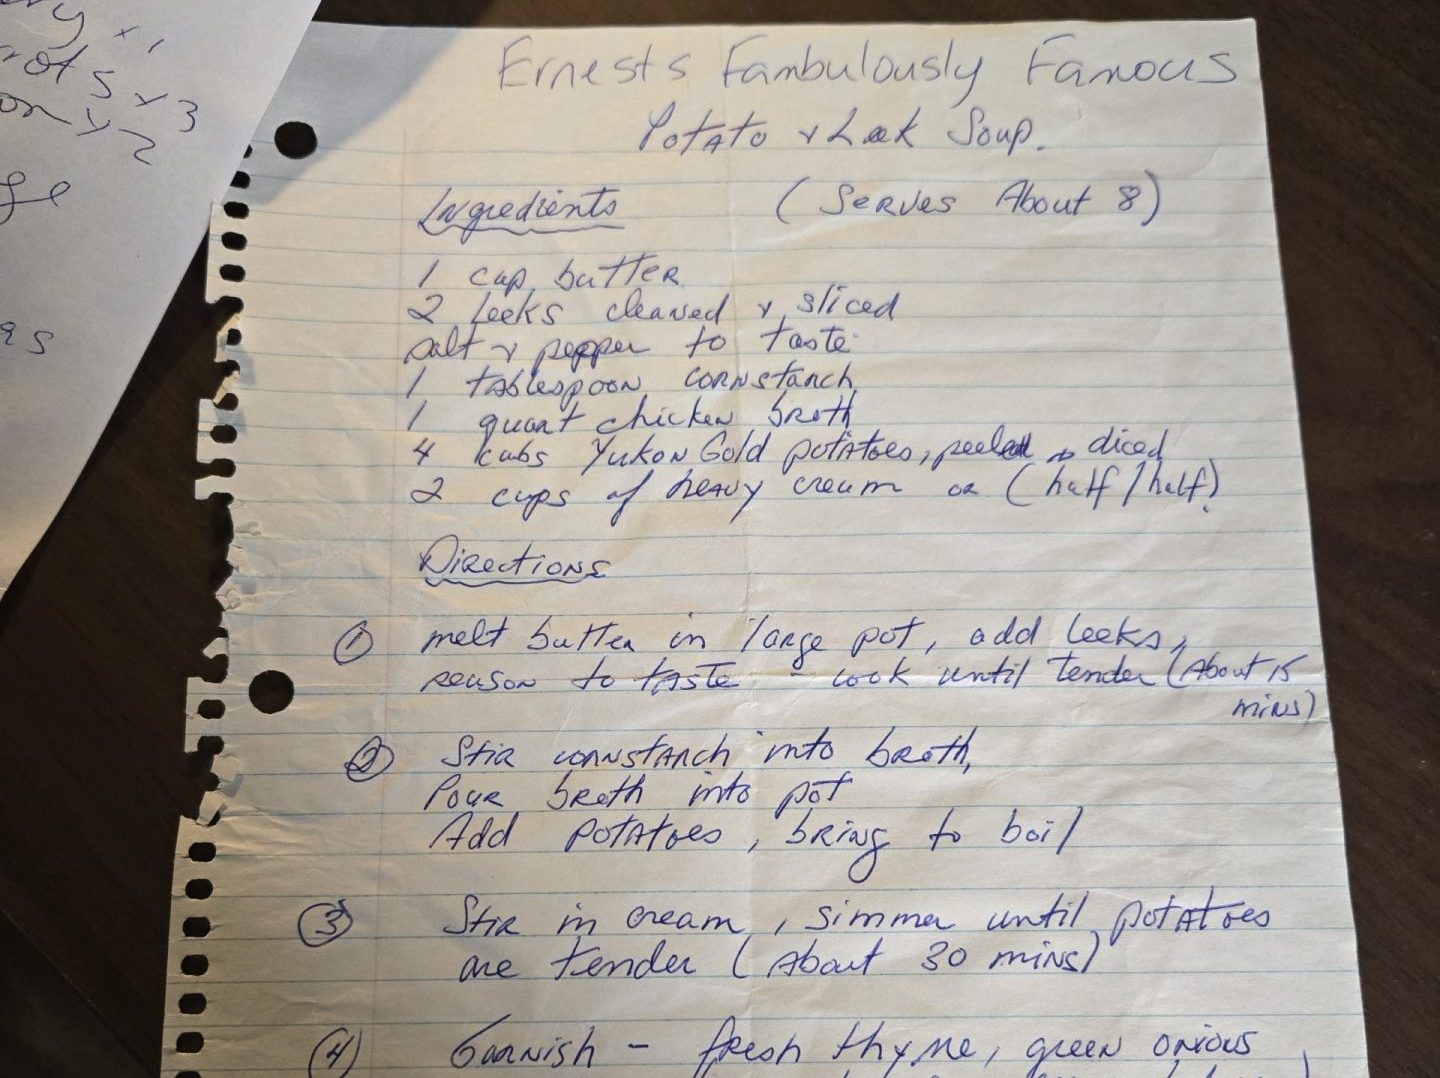 x 1
ots x 3
on x 2
ge
es
Ernests Fambulously Famous
Potato & Leek Soup.
Ingredients (Serves About 8)
1 cup butter
2 leeks cleaned & sliced
salt & pepper to taste
1 tablespoon cornstarch
1 quart chicken broth
4 cubs Yukon Gold potatoes, peeled & diced
2 cups of heavy cream or (half/half)
Directions
1 melt butter in large pot, add leeks,
reason to taste - cook until tender (About 15
mins)
2 Stir cornstarch into broth,
Pour broth into pot
Add potatoes, bring to boil
3 Stir in cream, simmer until potatoes
are tender (About 30 mins)
4 Garnish - fresh thyme, green onions